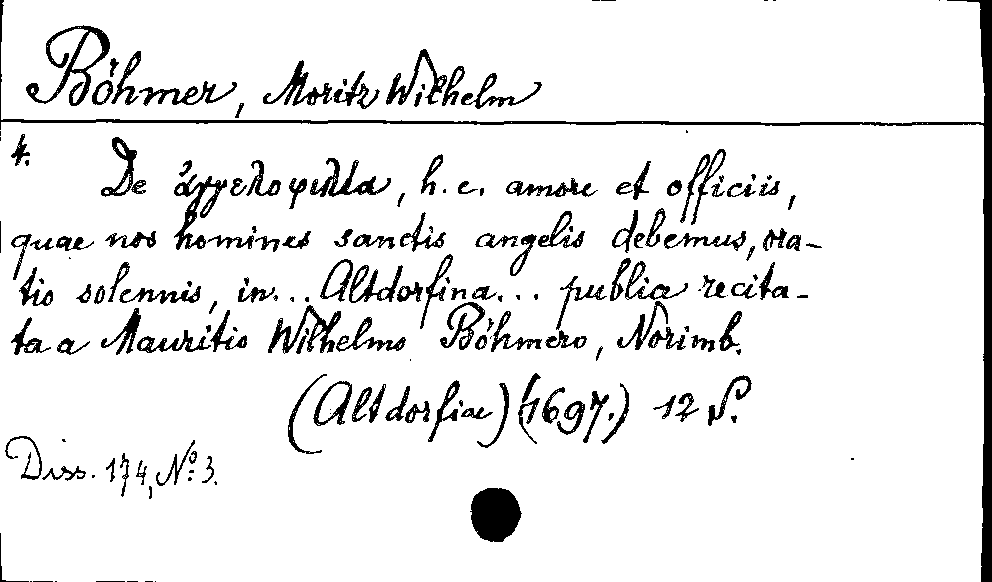 Böhmer, Moritz Wilhelm
4.
De ἀγγελοφιλία, h. e. amore et officiis,
quae nos homines sanctis angelis debemus, ora-
tio solennis, in... Altdorfina... publica recita-
ta a Mauritio Wilhelmo Böhmero, Norimb.
(Altdorfiae) (1697.) 12 S.
Diss. 174, No. 3.